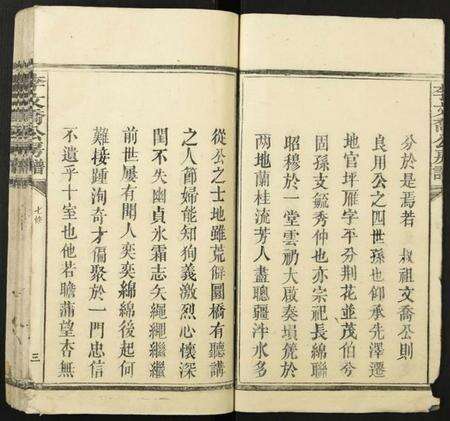 李文喬公房譜
分於是焉若 叔祖文喬公則
良用公之四世孫也仰承先澤遷
地官坪雁字平分荆花並茂伯兮
固孫支毓秀仲也亦宗祀長綿聯
昭穆於一堂雲礽大啟奏塤篪於
兩地蘭桂流芳人盡聰疆泮水多
從公之士地雖荒僻圜橋有聽講
之人節婦能知狥義激烈心懷深
閨不失幽貞氷霜志矢繩繩繼繼
前世屢有聞人奕奕綿綿後起何
難接踵洵奇才偏聚於一門忠信
不遺乎十室也他若瞻蒲望杏無
李文喬公房譜
七修
三